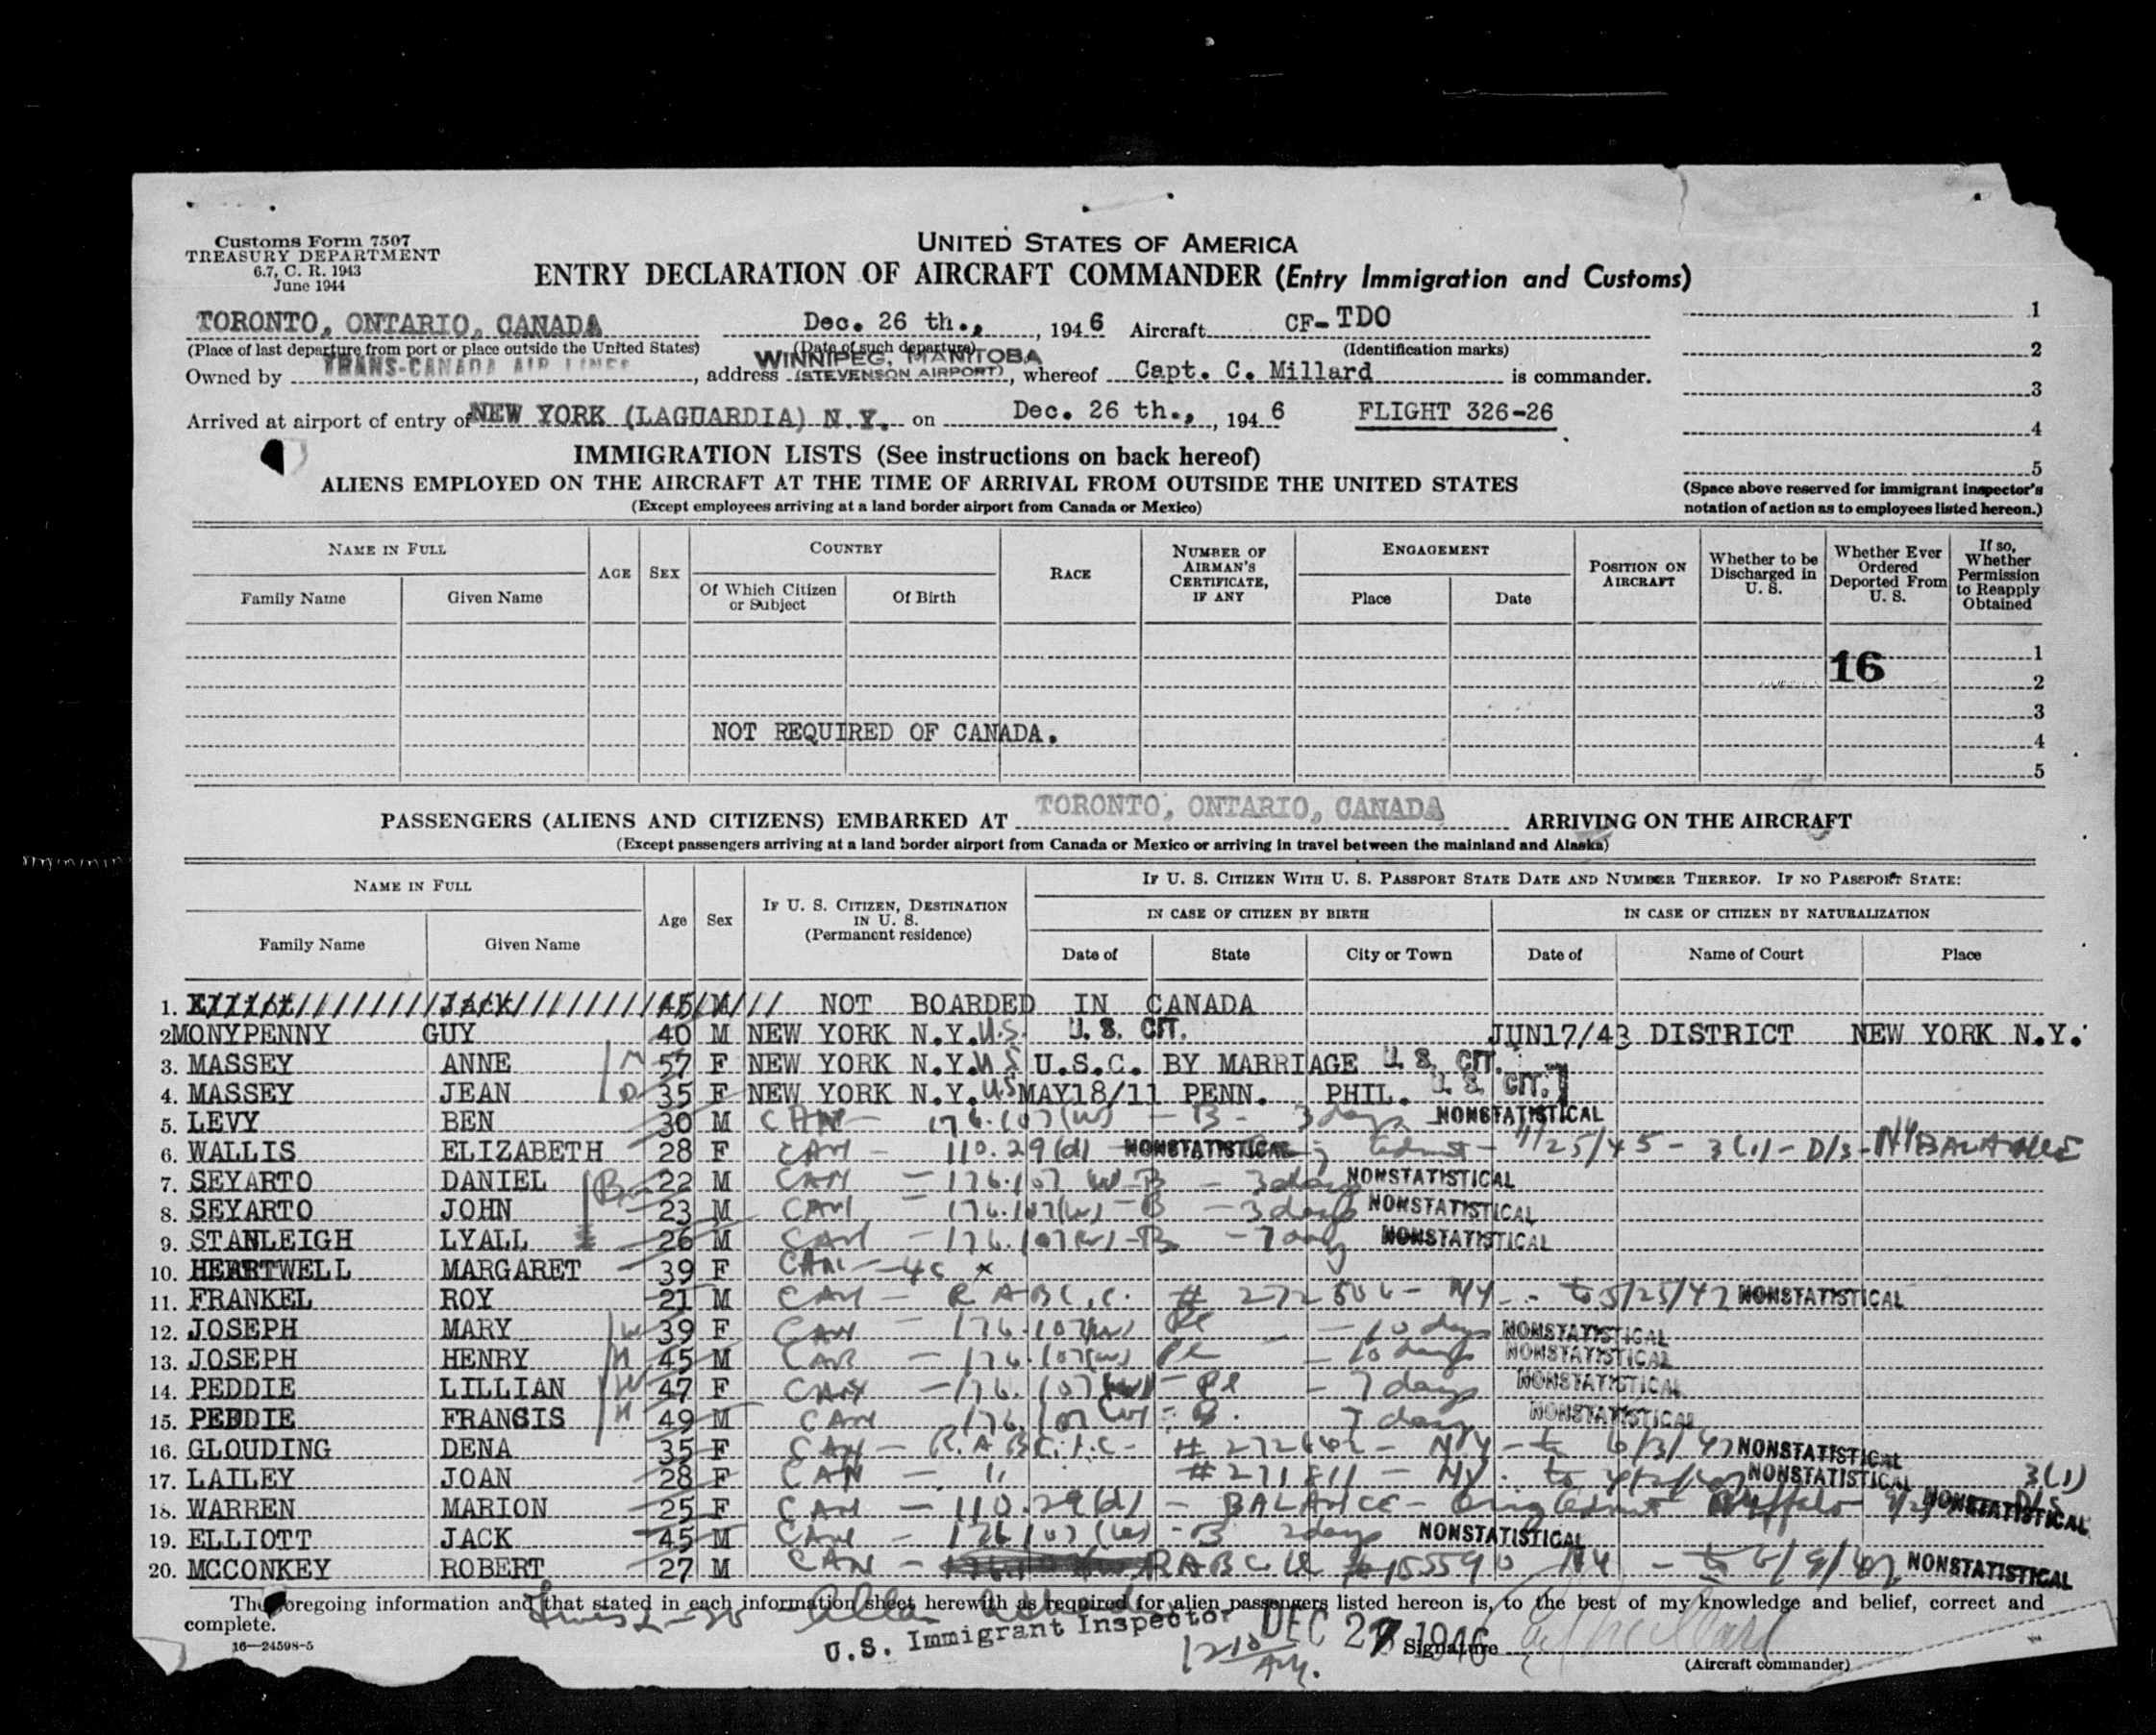 Customs Form 7507
TREASURY DEPARTMENT
6.7, C. R. 1943
June 1944
UNITED STATES OF AMERICA
ENTRY DECLARATION OF AIRCRAFT COMMANDER (Entry Immigration and Customs)
TORONTO, ONTARIO, CANADA Dec. 26 th., , 194 6 Aircraft CF-TDO
(Place of last departure from port or place outside the United States) (Date of such departure) (Identification marks)
WINNIPEG, MANITOBA
Owned by TRANS-CANADA AIR LINES, address (STEVENSON AIRPORT), whereof Capt. C. Millard is commander.
Arrived at airport of entry of NEW YORK (LAGUARDIA) N.Y. on Dec. 26 th., , 194 6 FLIGHT 326-26
1
2
3
4
5
(Space above reserved for immigrant inspector's notation of action as to employees listed hereon.)
IMMIGRATION LISTS (See instructions on back hereof)
ALIENS EMPLOYED ON THE AIRCRAFT AT THE TIME OF ARRIVAL FROM OUTSIDE THE UNITED STATES
(Except employees arriving at a land border airport from Canada or Mexico)
NAME IN FULL AGE SEX COUNTRY RACE NUMBER OF AIRMAN'S CERTIFICATE, IF ANY ENGAGEMENT POSITION ON AIRCRAFT Whether to be Discharged in U. S. Whether Ever Ordered Deported From U. S. If so, Whether Permission to Reapply Obtained
Family Name Given Name Of Which Citizen or Subject Of Birth Place Date
1
16
2
3
NOT REQUIRED OF CANADA.
4
5
PASSENGERS (ALIENS AND CITIZENS) EMBARKED AT TORONTO, ONTARIO, CANADA ARRIVING ON THE AIRCRAFT
(Except passengers arriving at a land border airport from Canada or Mexico or arriving in travel between the mainland and Alaska)
NAME IN FULL Age Sex IF U. S. CITIZEN, DESTINATION IN U. S. (Permanent residence) IF U. S. CITIZEN WITH U. S. PASSPORT STATE DATE AND NUMBER THEREOF. IF NO PASSPORT STATE:
IN CASE OF CITIZEN BY BIRTH IN CASE OF CITIZEN BY NATURALIZATION
Family Name Given Name Date of State City or Town Date of Name of Court Place
1. Elliot Jack 45 M NOT BOARDED IN CANADA
2 MONYPENNY GUY 40 M NEW YORK N.Y. U.S. U. S. CIT. JUN17/43 DISTRICT NEW YORK N.Y.
3. MASSEY ANNE 57 F NEW YORK N.Y. US U.S.C. BY MARRIAGE U. S. CIT.
4. MASSEY JEAN 35 F NEW YORK N.Y. US MAY18/11 PENN. PHIL. U. S. CIT.
5. LEVY BEN 30 M CAN - 176.107(w) - B - 3 days NONSTATISTICAL
6. WALLIS ELIZABETH 28 F CAN - 110.29(d) NONSTATISTICAL 25/45 - 3(1) - D/S - NY BALANCE
7. SEYARTO DANIEL 22 M CAN - 176.107 W-B - 3 days NONSTATISTICAL
8. SEYARTO JOHN 23 M CAN 176.107(w) - B - 3 days NONSTATISTICAL
9. STANLEIGH LYALL 26 M CAN - 176.107(w) - B - 7 days NONSTATISTICAL
10. HEARTWELL MARGARET 39 F CAN - 4c x
11. FRANKEL ROY 21 M CAN - R A B C.C. # 272506 - NY - to 5/25/47 NONSTATISTICAL
12. JOSEPH MARY W 39 F CAN - 176.107(w) Pl - 10 days NONSTATISTICAL
13. JOSEPH HENRY H 45 M CAN - 176.107(w) Pl - 10 days NONSTATISTICAL
14. PEDDIE LILLIAN W 47 F CAN - 176.107(w) - Pl - 7 days NONSTATISTICAL
15. PEDDIE FRANSIS H 49 M CAN 176.107(w) - B. 7 days NONSTATISTICAL
16. GLOUDING DENA 35 F CAN - R.A.B.C.I.C - # 272602 - NY - to 6/3/47 NONSTATISTICAL
17. LAILEY JOAN 28 F CAN - " # 271811 - NY. to NONSTATISTICAL 3(1)
18. WARREN MARION 25 F CAN - 110.29(d) - BALANCE - Orig admit Buffalo NONSTATISTICAL D/S
19. ELLIOTT JACK 45 M CAN - 176.107(w) - B 2 days NONSTATISTICAL
20. MCCONKEY ROBERT 27 M CAN - RABC # 155590 NY - to 6/9/47 NONSTATISTICAL
The foregoing information and that stated in each information sheet herewith as required for alien passengers listed hereon is, to the best of my knowledge and belief, correct and complete.
U.S. Immigrant Inspector DEC 27 1946 Signature
16—24598-5 1210 AM. (Aircraft commander)